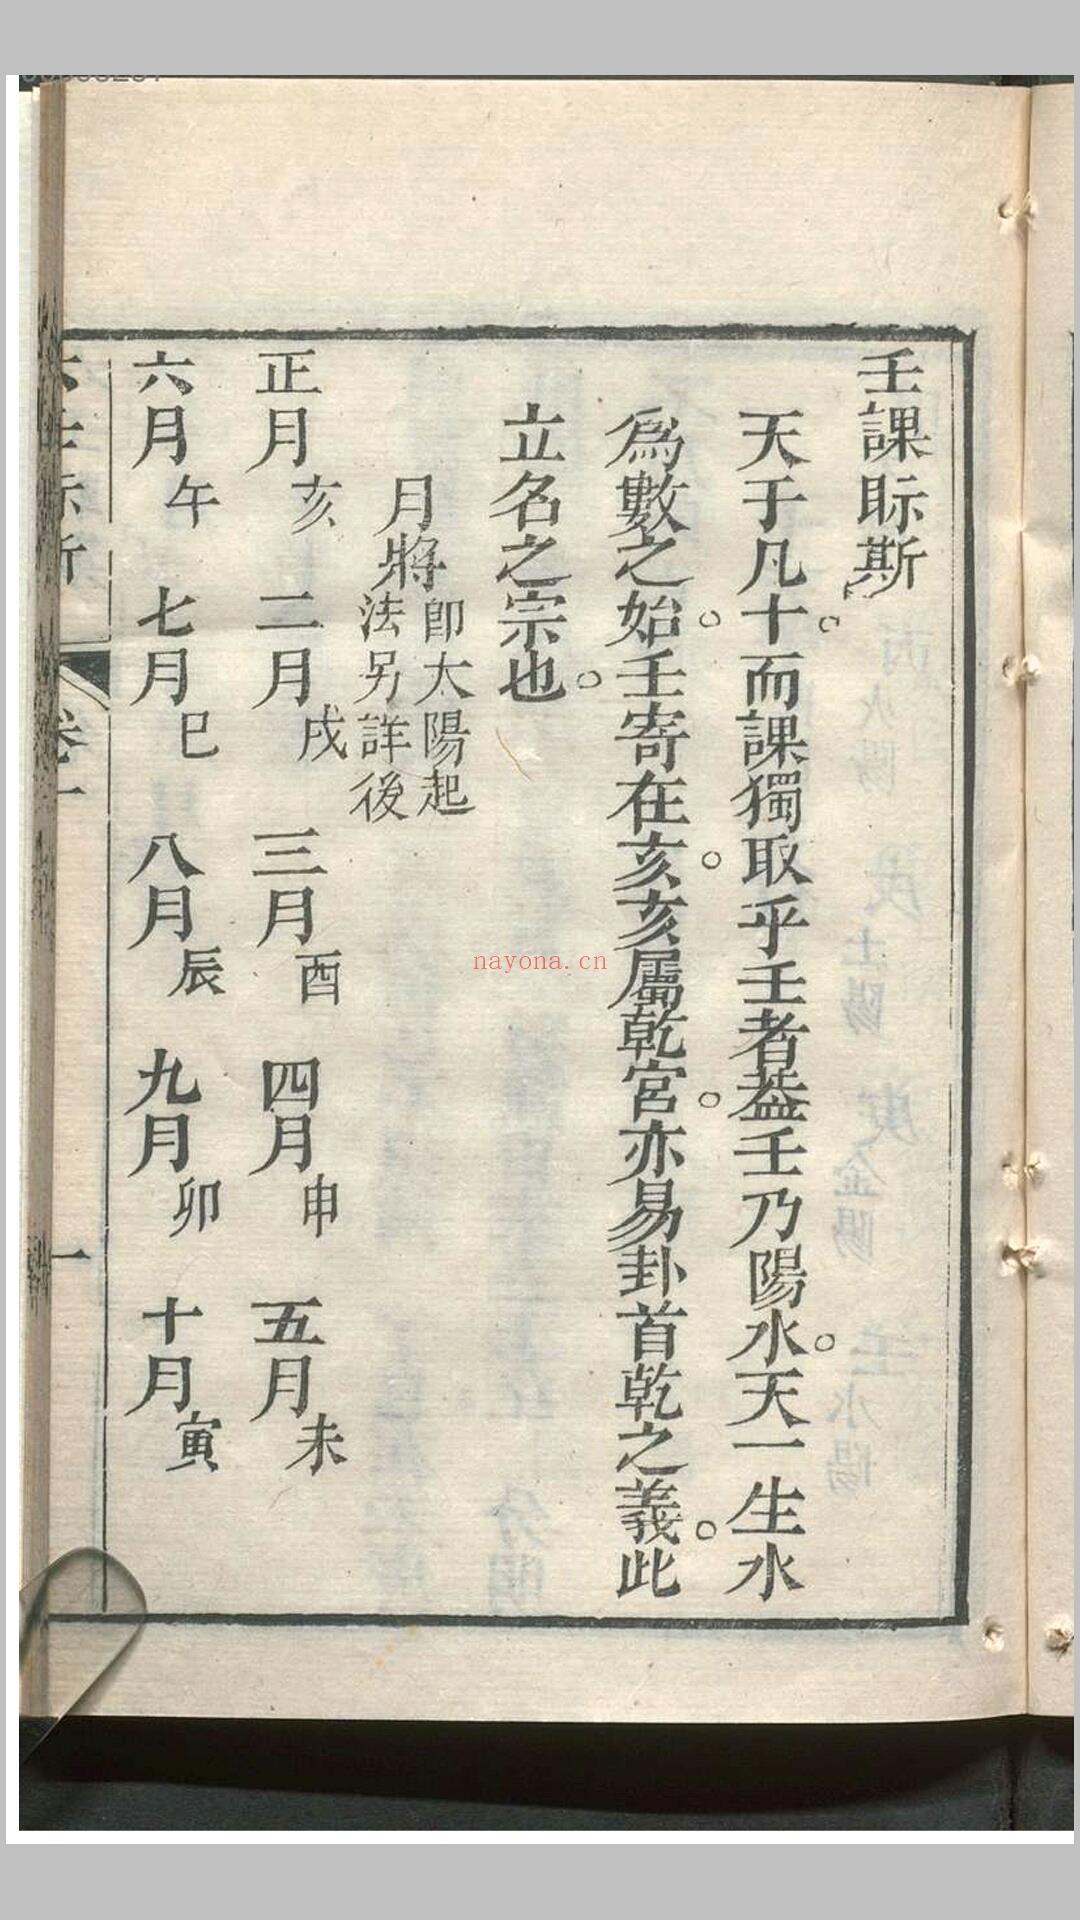 壬課眎斯
天于凡十而課獨取乎壬者葢壬乃陽水天一生水
爲數之始壬寄在亥亥屬乾宮亦易卦首乾之義此
立名之宗也
月將 卽太陽起
法另詳後
正月亥 二月戌 三月酉 四月申 五月未
六月午 七月巳 八月辰 九月卯 十月寅
卷一
一
nayona.cn